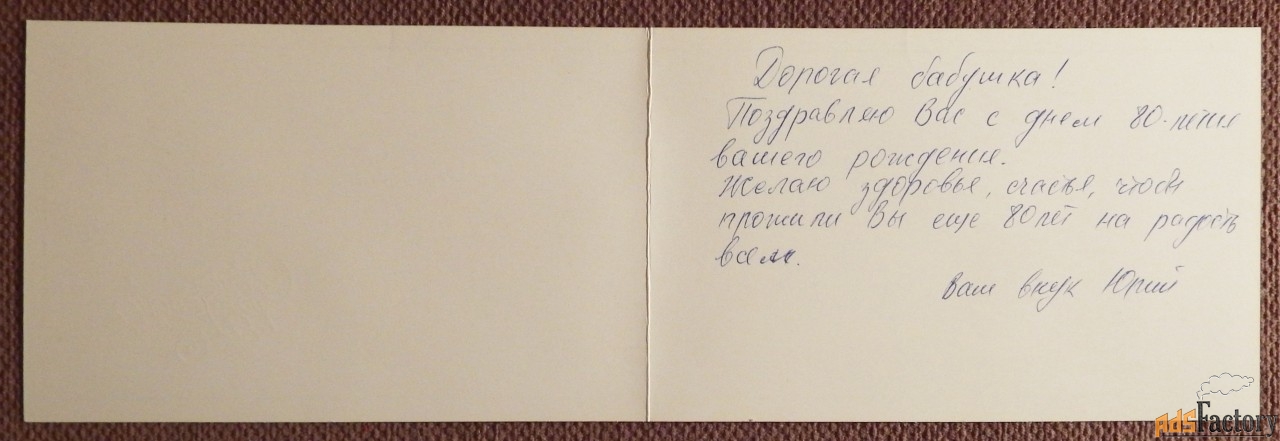 Дорогая бабушка!
Поздравляю Вас с днем 80-летия
вашего рождения.
Желаю здоровья, счастья, чтобы
прожили Вы еще 80 лет на радость
всем.
Ваш внук Юрий
AdsFactory